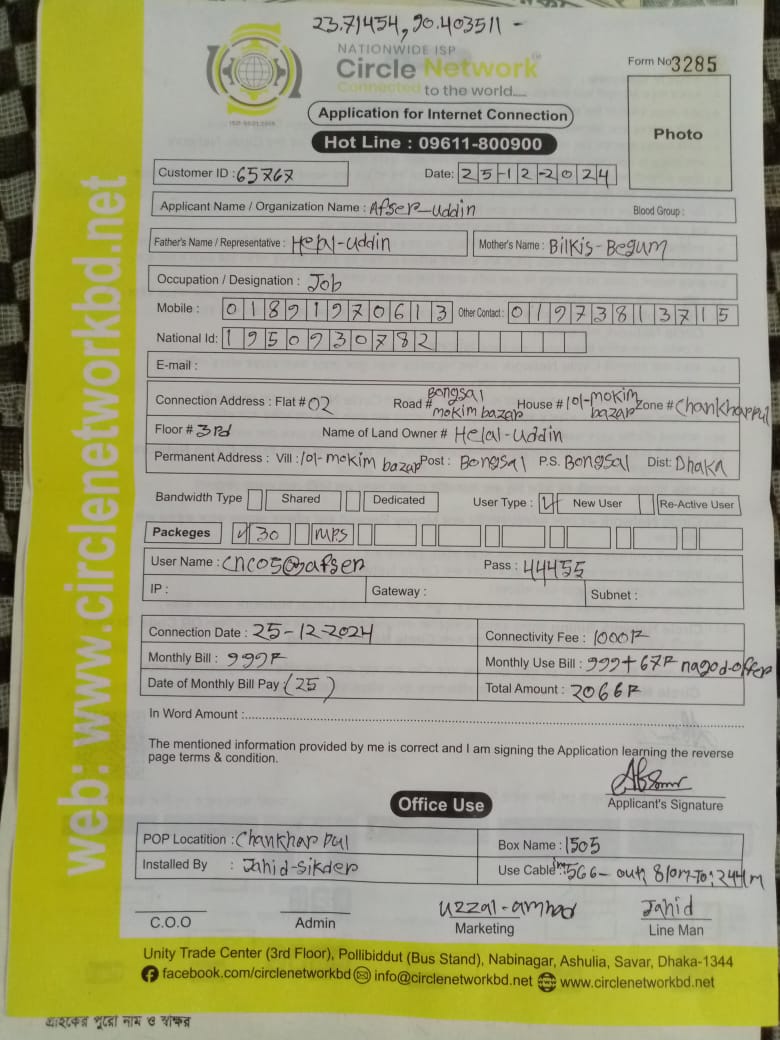 23.71454, 90.403511 -
NATIONWIDE ISP
Circle Network
Connected to the world.....
Form No 3285
Application for Internet Connection
Photo
Hot Line : 09611-800900
Customer ID : 65767 Date: 25-12-2024
Applicant Name / Organization Name : Afser-uddin Blood Group :
Father's Name / Representative : Helal-uddin Mother's Name : Bilkis-Begum
Occupation / Designation : Job
Mobile : 01891970613 Other Contact : 01973813715
National Id: 1950930782
E-mail :
Connection Address : Flat # 02 Road # Bongsal mokim bazar House # 101-mokim bazar Zone # Chankharpul
Floor # 3rd Name of Land Owner # Helal-uddin
Permanent Address : Vill : 101-mokim bazar Post : Bongsal P.S. Bongsal Dist: Dhaka
Bandwidth Type Shared Dedicated User Type : New User Re-Active User
Packeges 30 MPS
User Name : cnc05@afser Pass : 44455
IP : Gateway : Subnet :
Connection Date : 25-12-2024 Connectivity Fee : 1000
Monthly Bill : 999 Monthly Use Bill : 999+67 nagod-offer
Date of Monthly Bill Pay : (25) Total Amount : 2066
In Word Amount :
The mentioned information provided by me is correct and I am signing the Application learning the reverse
page terms & condition.
Applicant's Signature
Office Use
POP Locatition : Chankhar pul Box Name : 1505
Installed By : Jahid-Sikder Use Cable : 566- out;
Uzzal-amhad Jahid
C.O.O Admin Marketing Line Man
Unity Trade Center (3rd Floor), Pollibiddut (Bus Stand), Nabinagar, Ashulia, Savar, Dhaka-1344
facebook.com/circlenetworkbd info@circlenetworkbd.net www.circlenetworkbd.net
web: www.circlenetworkbd.net
গ্রাহকের পুরো নাম ও স্বাক্ষর